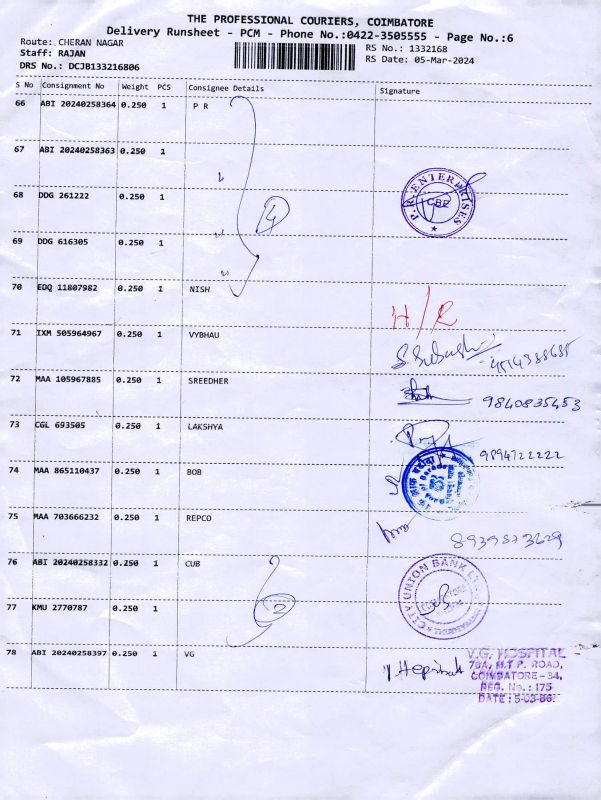 THE PROFESSIONAL COURIERS, COIMBATORE
Delivery Runsheet - PCM - Phone No.:0422-3505555 - Page No.:6
Route: CHERAN NAGAR RS No.: 1332168
Staff: RAJAN RS Date: 05-Mar-2024
DRS No.: DCJB133216806
S No Consignment No Weight PCS Consignee Details Signature
66 ABI 20240258364 0.250 1 P R
67 ABI 20240258363 0.250 1
68 DDG 261222 0.250 1
P.R. ENTERPRISES
CBE
4
69 DDG 616305 0.250 1
70 EDQ 11807982 0.250 1 NISH
H/R
71 IXM 505964967 0.250 1 VYBHAU
72 MAA 105967885 0.250 1 SREEDHER
9840835453
73 CGL 693505 0.250 1 LAKSHYA
9894722222
74 MAA 865110437 0.250 1 BOB
75 MAA 703666232 0.250 1 REPCO
8939873629
76 ABI 20240258332 0.250 1 CUB
CITY UNION BANK LTD.
2
77 KMU 2770787 0.250 1
78 ABI 20240258397 0.250 1 VG
V.G. HOSPITAL
78A, M.T.P. ROAD,
COIMBATORE-34,
REG. No.: 175